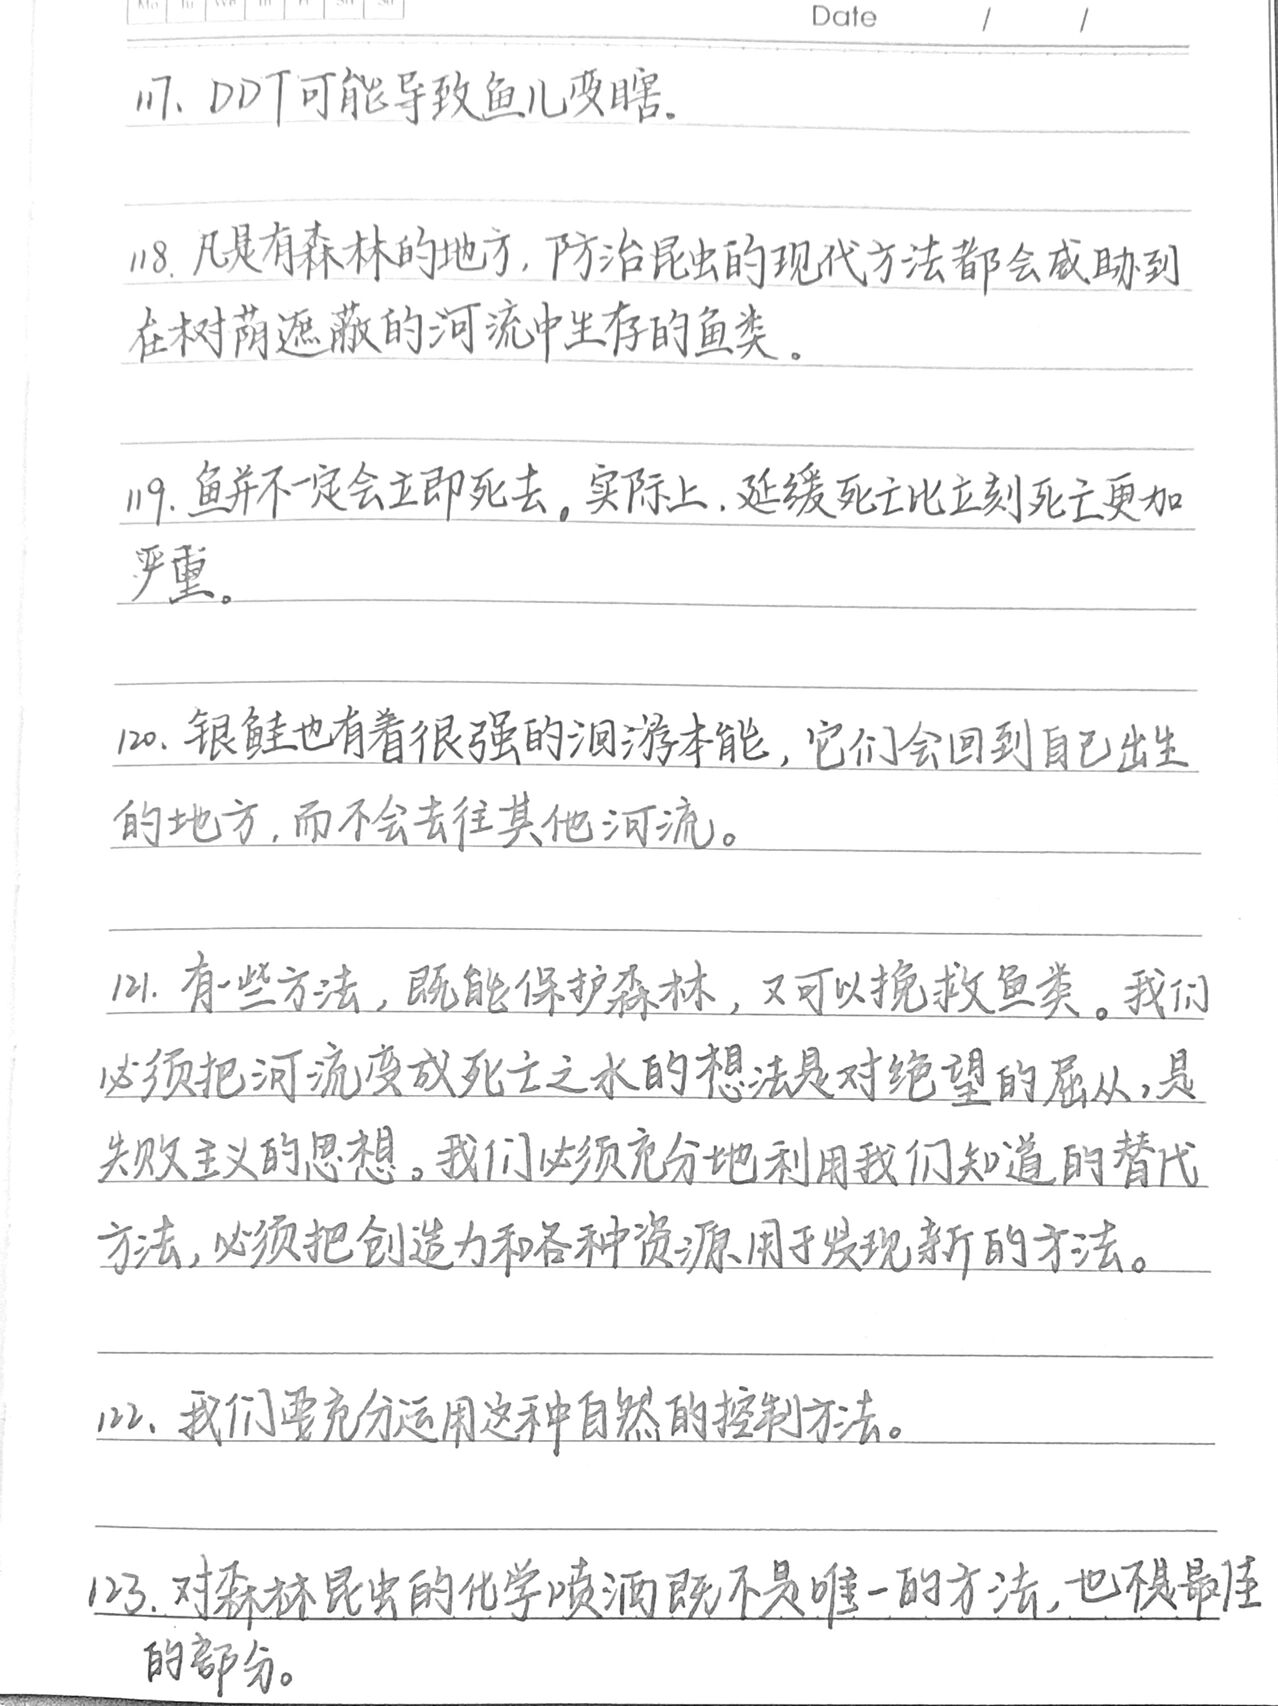 Mo Tu We Th Fr Sa Su
Date / /
117. DDT可能导致鱼儿变瞎.
118. 凡是有森林的地方, 防治昆虫的现代方法都会威胁到
在树荫遮蔽的河流中生存的鱼类。
119. 鱼并不一定会立即死去。实际上, 延缓死亡比立刻死亡更加
严重。
120. 银鲑也有着很强的洄游本能, 它们会回到自己出生
的地方, 而不会去往其他河流。
121. 有一些方法, 既能保护森林, 又可以挽救鱼类。我们
必须把河流变成死亡之水的想法是对绝望的屈从, 是
失败主义的思想。我们必须充分地利用我们知道的替代
方法, 必须把创造力和各种资源用于发现新的方法。
122. 我们要充分运用这种自然的控制方法。
123. 对森林昆虫的化学喷洒既不是唯一的方法, 也不是最佳
的部分。